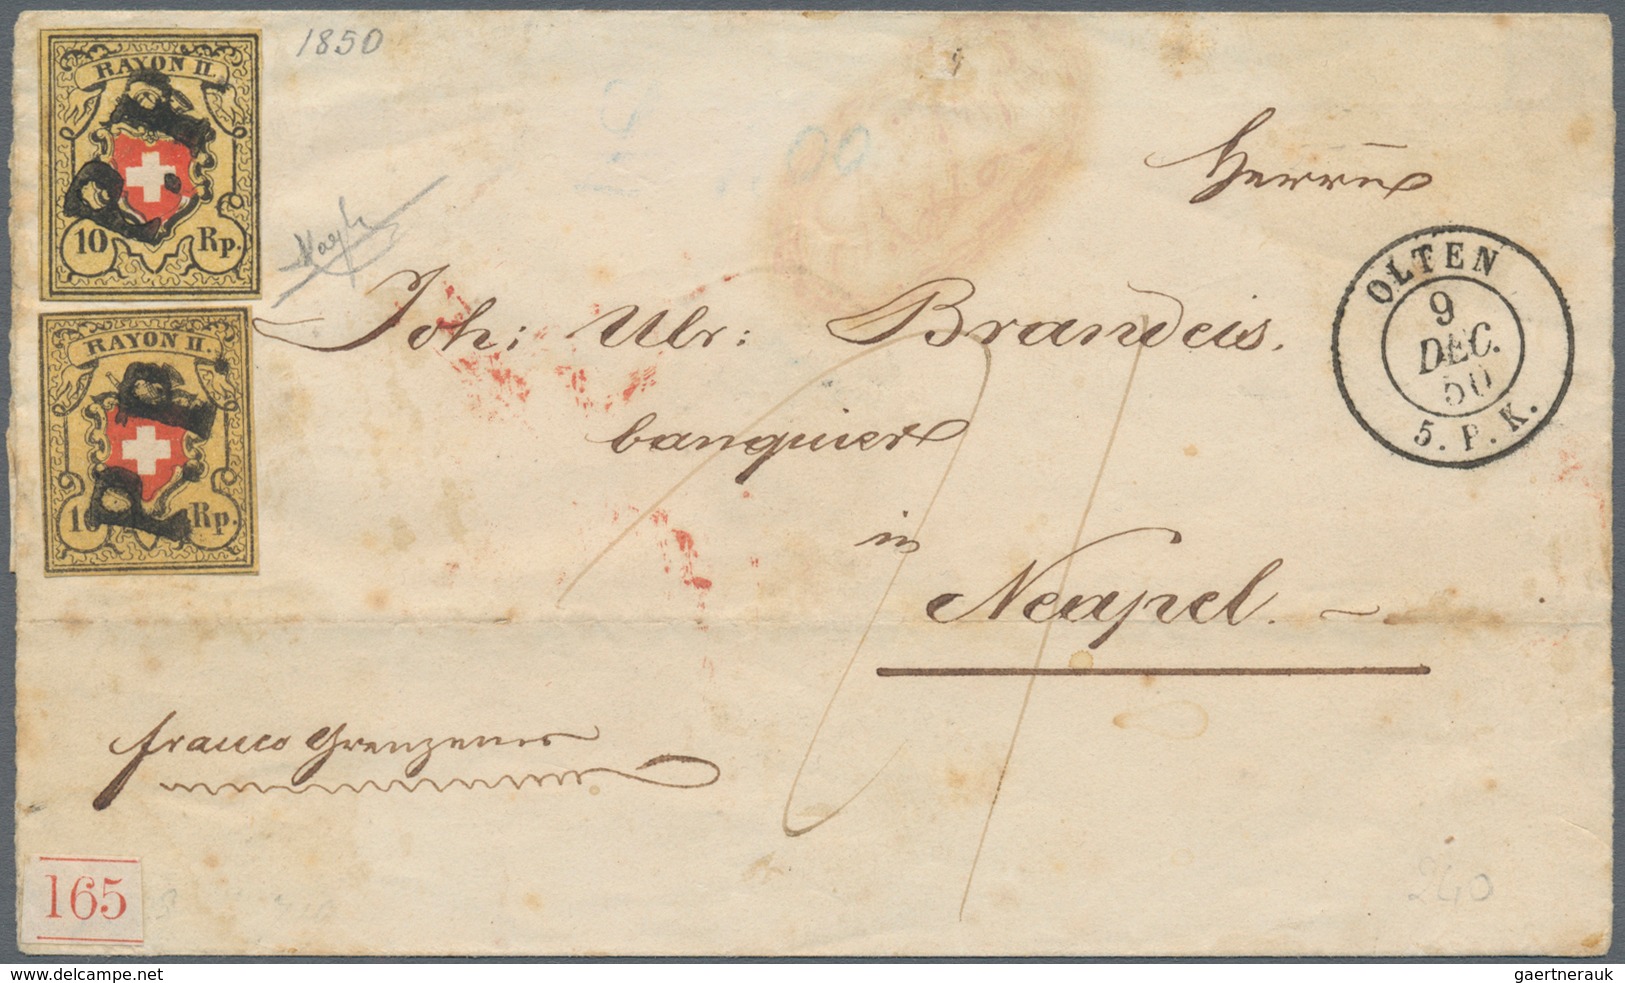 1850
RAYON II.
P.P.
10 Rp.
RAYON II.
P.P.
10 Rp.
Herrn
Joh: Ulr: Brandeis.
banquier
in
Neapel.
OLTEN
9
DEC.
50
5. P. K.
franco Grenzen
165
240
www.delcampe.net
gaertnerauk